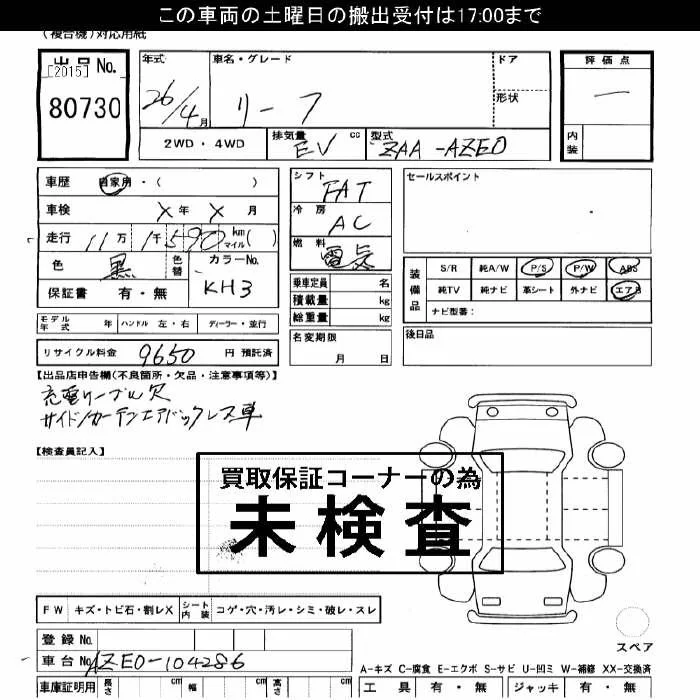 この車両の土曜日の搬出受付は17:00まで
(複合機)対応用紙
出品No.
[2015]
80730
年式
26/4月
車名・グレード
リーフ
ドア
形状
2WD・4WD
排気量 EV cc
型式 ZAA-AZE0
評価点
一
内装
車歴 自家用・( )
車検 X年 X月
走行 11万1千590 km マイル( )
色 黒 色替
カラーNo.
KH3
保証書 有・無
シフト FAT
冷房 AC
燃料 電気
乗車定員 名
積載量 kg
総重量 kg
セールスポイント
装備品
S/R 純A/W P/S P/W ABS
純TV 純ナビ 革シート 外ナビ エアB
ナビ型番:
モデル年式 年 ハンドル 左・右 ディーラー・並行
名変期限
月 日
後日品
リサイクル料金 9650 円 預託済
【出品店申告欄(不良箇所・欠品・注意事項等)】
充電ケーブル欠
サイド/カーテンエアバックレス車
【検査員記入】
買取保証コーナーの為
未検査
FW キズ・トビ石・割レX シート内装 コゲ・穴・汚レ・シミ・破レ・スレ
登録No.
車台No. AZE0-104286
車庫証明用 長さ cm 幅 cm 高さ cm
スペア
A-キズ C-腐食 E-エクボ S-サビ U-凹ミ W-補修 XX-交換済
工具 有・無 ジャッキ 有・無